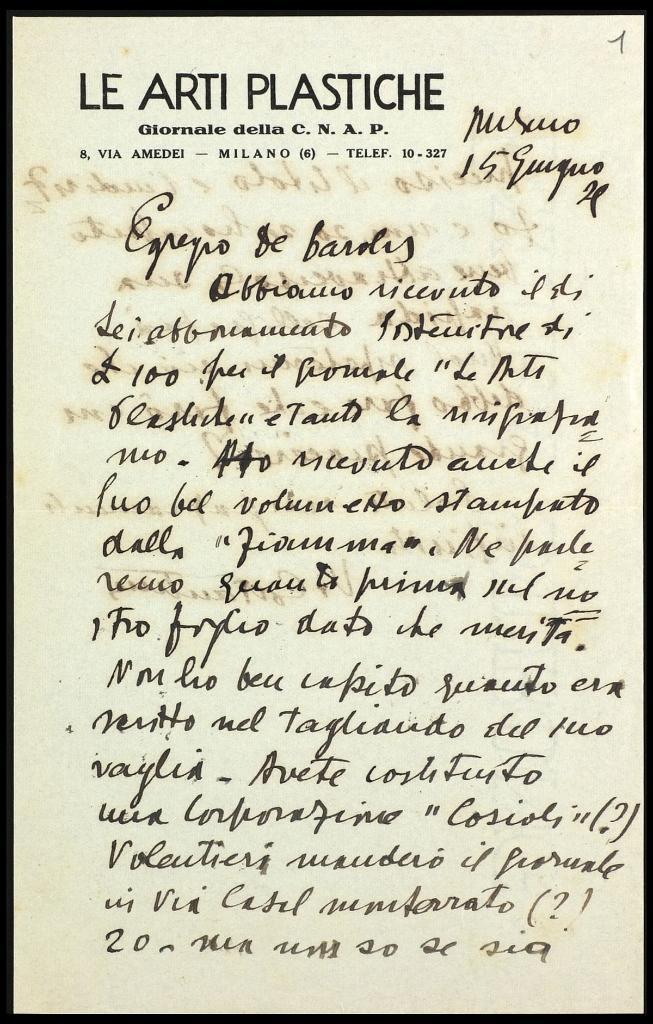 1
LE ARTI PLASTICHE
Giornale della C. N. A. P.
8, VIA AMEDEI — MILANO (6) — TELEF. 10-327
Milano
15 Giugno
Egregio De Bardis
Abbiamo ricevuto il di
Lei abbonamento sostenitore di
£ 100 per il giornale "Le Arti
Plastiche" e tanto la ringrazia
mo. Ho ricevuto anche il
suo bel volumetto stampato
dalla "Fiamma". Ne parle
remo quanto prima sul no
stro foglio dato che merita.
Non ho ben capito quanto era
scritto nel tagliando del suo
vaglia - Avete costituito
una Corporazione "Cosioli" (?)
Volentieri manderò il giornale
in Via Casal monferrato (?)
20 - ma non so se sia